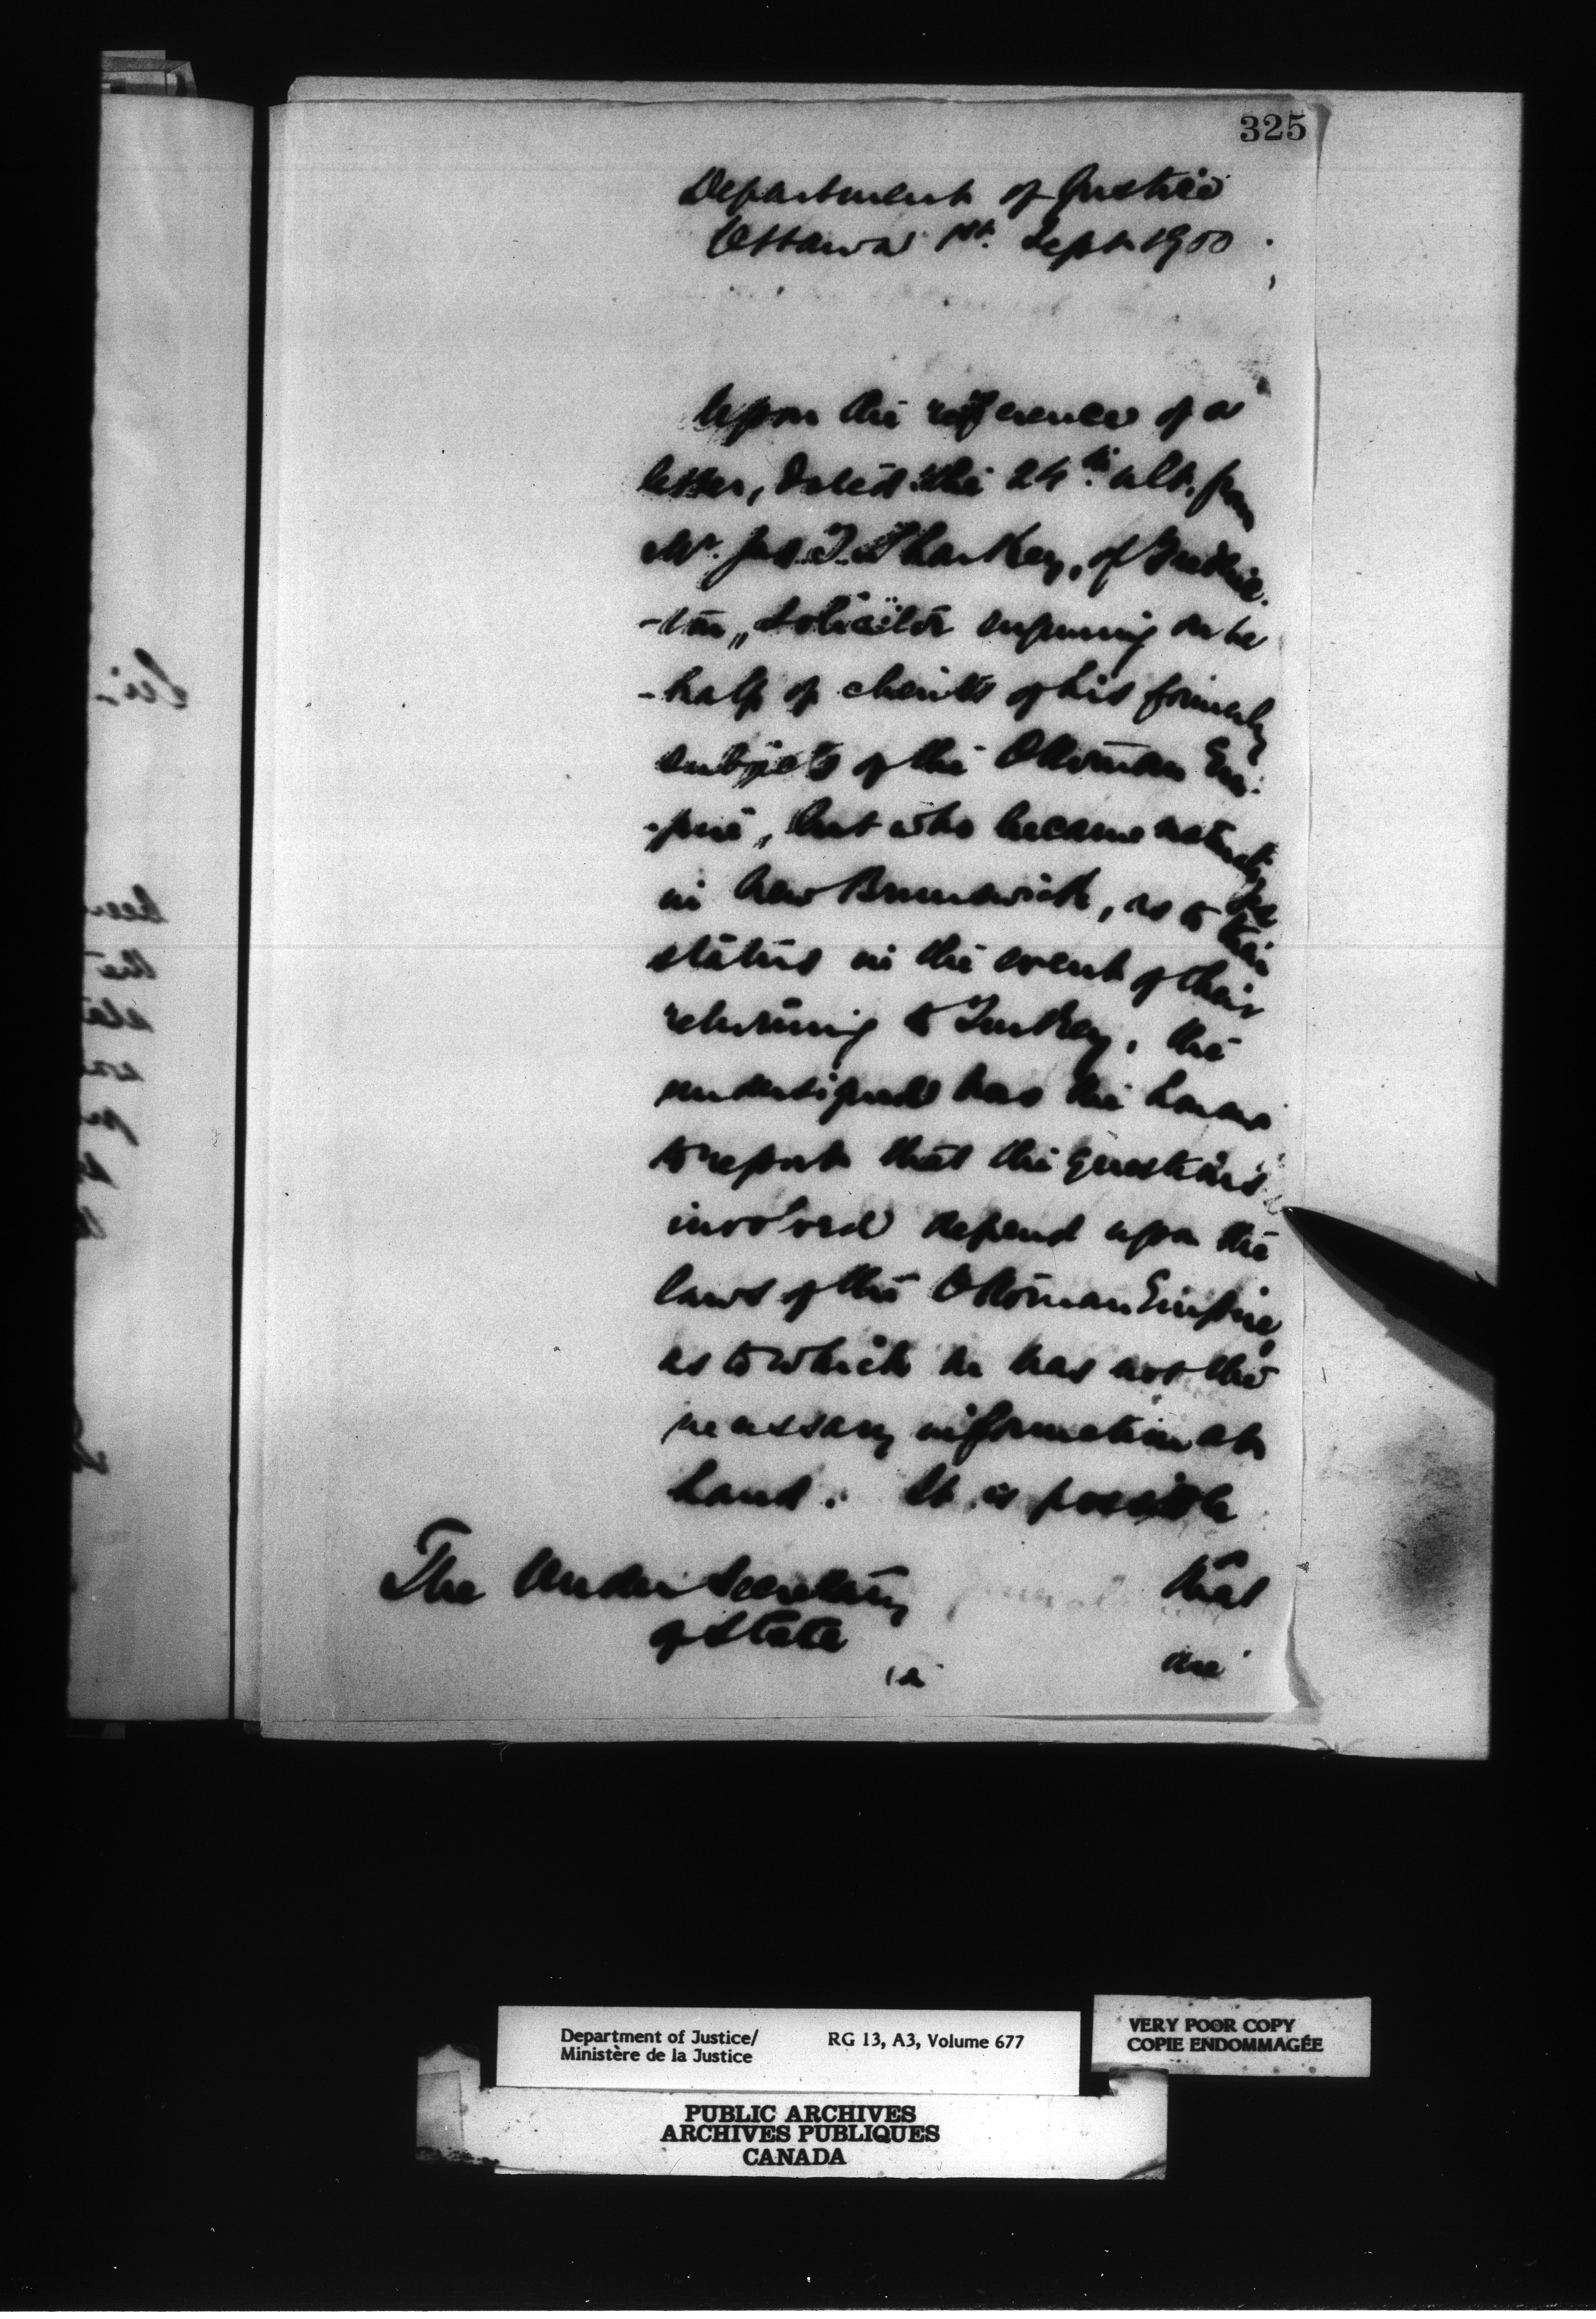 325
Department of Justice
Ottawa 1st. Sept. 1900
Upon the reference of a
letter, dated the 24th. ult. from
Mr. Jas. T. Sharkey, of Frederic-
-ton, Solicitor enquiring on be
-half of clients of his formerly
subjects of the Ottoman Em-
-pire, but who became naturalized
in New Brunswick, as to their
status in the event of their
returning to Turkey, the
undersigned has the honour
to report that the questions
involved depend upon the
laws of the Ottoman Empire,
as to which he has not the
necessary information at
hand. It is possible
The Under Secretary
of State
that
the
Department of Justice/
Ministère de la Justice
RG 13, A3, Volume 677
VERY POOR COPY
COPIE ENDOMMAGÉE
PUBLIC ARCHIVES
ARCHIVES PUBLIQUES
CANADA